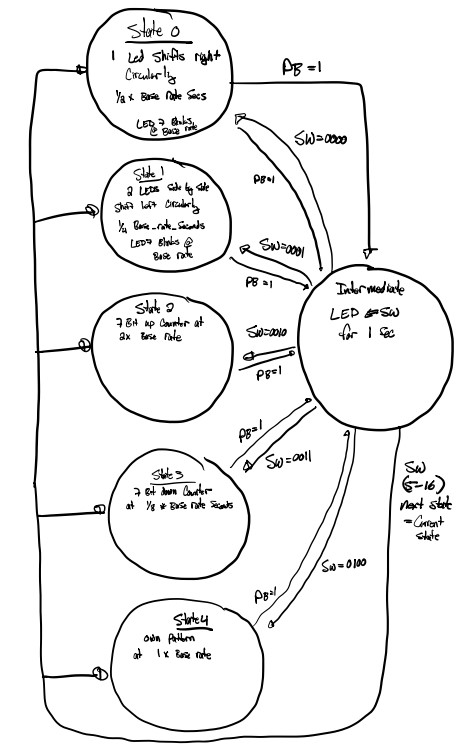 State 0
1 Led Shifts right
Circularly
1/2 x Base rate Secs
LED 7 Blinks
@ Base rate
PB=1
SW=0000
PB=1
State 1
2 LEDs Side by Side
Shift left Circularly
1/4 Base_rate_Seconds
LED7 Blinks @
Base rate
SW=0001
PB=1
Intermediate
LED <= SW
for 1 Sec
State 2
7 Bit up Counter at
2x Base rate
SW=0010
PB=1
PB=1
SW=0011
State 3
7 Bit down Counter
at 1/8 * Base rate Seconds
SW
(5-16)
next state
= Current
State
SW=0100
PB=1
State 4
own Pattern
at 1 x Base rate